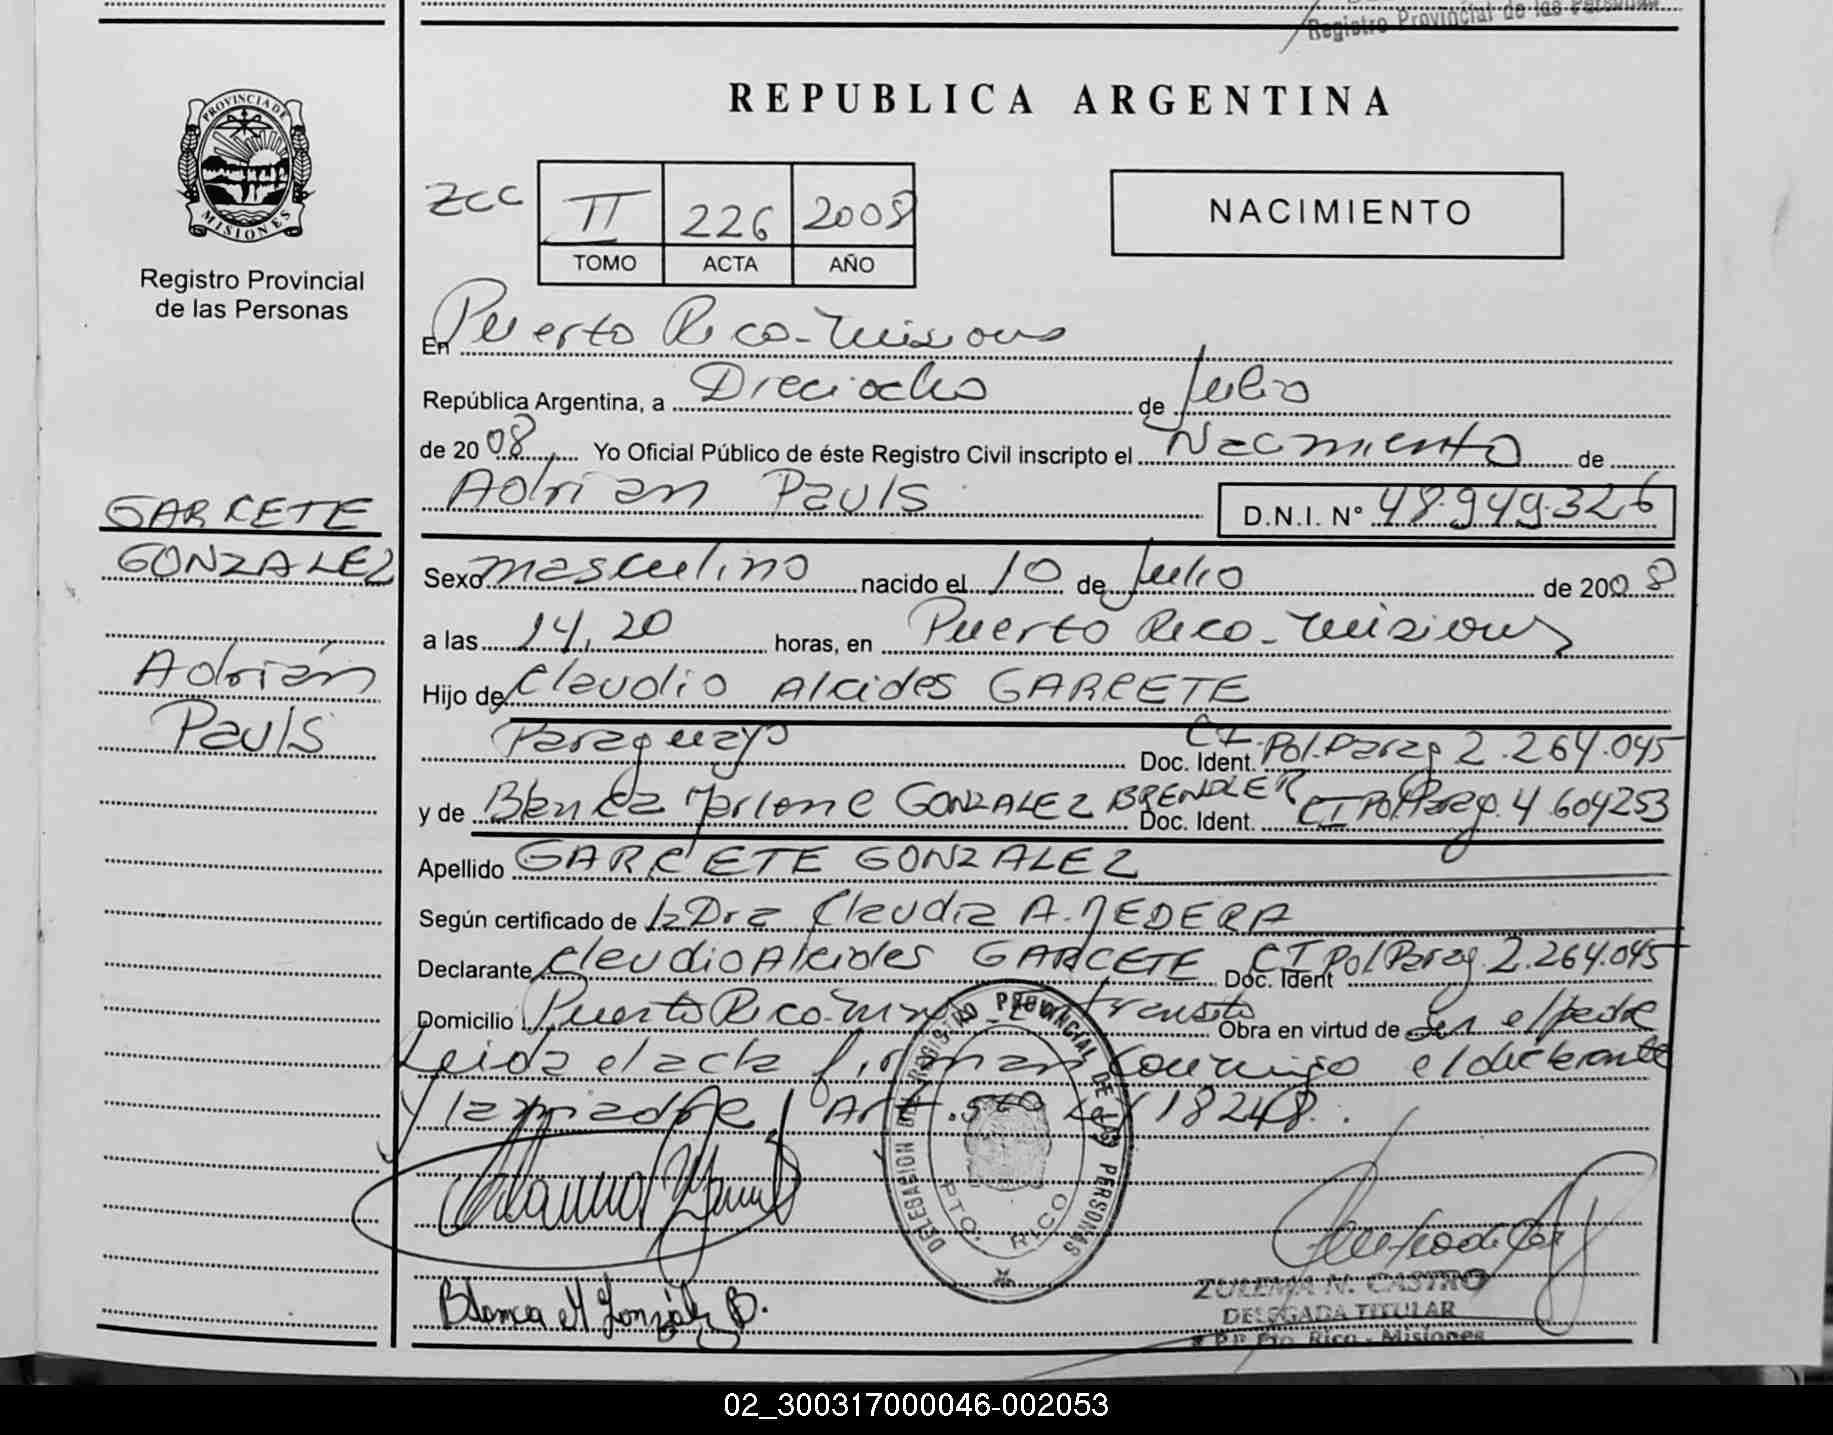 Registro Provincial de las Personas
PROVINCIA DE
MISIONES
Registro Provincial
de las Personas
REPUBLICA ARGENTINA
ZCC II 226 2008
TOMO ACTA AÑO
NACIMIENTO
En Puerto Rico - Misiones
República Argentina, a Dieciocho de Julio
de 2008 Yo Oficial Público de éste Registro Civil inscripto el Nacimiento de
Adrian Pauls D.N.I. N° 48.949.326
GARCETE
GONZALEZ
Adrián
Pauls
Sexo masculino nacido el 10 de Julio de 2008
a las 14,20 horas, en Puerto Rico - Misiones
Hijo de Claudio Alcides GARCETE
Paraguayo Doc. Ident. CI. Pol. Parag 2.264.045
y de Blanca Marlene GONZALEZ BRENDLER Doc. Ident. CI Pol. Parag. 4.604253
Apellido GARCETE GONZALEZ
Según certificado de la Dra Claudia A. MEDERA
Declarante Claudio Alcides GARCETE Doc. Ident CI Pol Parag. 2.264.045
Domicilio Puerto Rico transito Obra en virtud de ser el padre
Leida el acta firman conmigo el declarante
y la madre Art. 5to Ley 18248.
DELEGACION DEL REGISTRO PROVINCIAL DE LAS PERSONAS
PTO. RICO
Blanca M González B.
ZULEMA N. CASTRO
DELEGADA TITULAR
Pto. Rico - Misiones
02_300317000046-002053